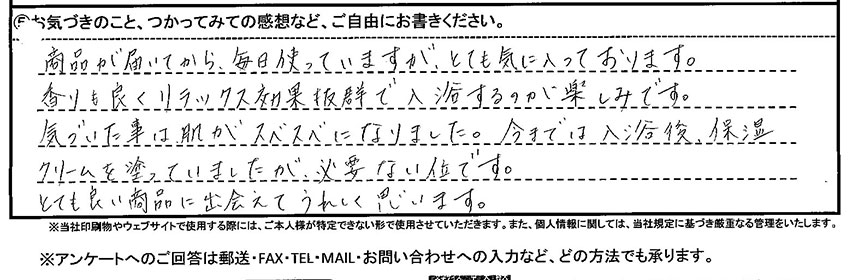 Ⓕお気づきのこと、つかってみての感想など、ご自由にお書きください。
商品が届いてから、毎日使っていますが、とても気に入っております。
香りも良くリラックス効果抜群で入浴するのが楽しみです。
気づいた事は肌がスベスベになりました。今までは入浴後、保湿
クリームを塗っていましたが、必要ない位です。
とても良い商品に出会えてうれしく思います。
※当社印刷物やウェブサイトで使用する際には、ご本人様が特定できない形で使用させていただきます。また、個人情報に関しては、当社規定に基づき厳重なる管理をいたします。
※アンケートへのご回答は郵送・FAX・TEL・MAIL・お問い合わせへの入力など、どの方法でも承ります。